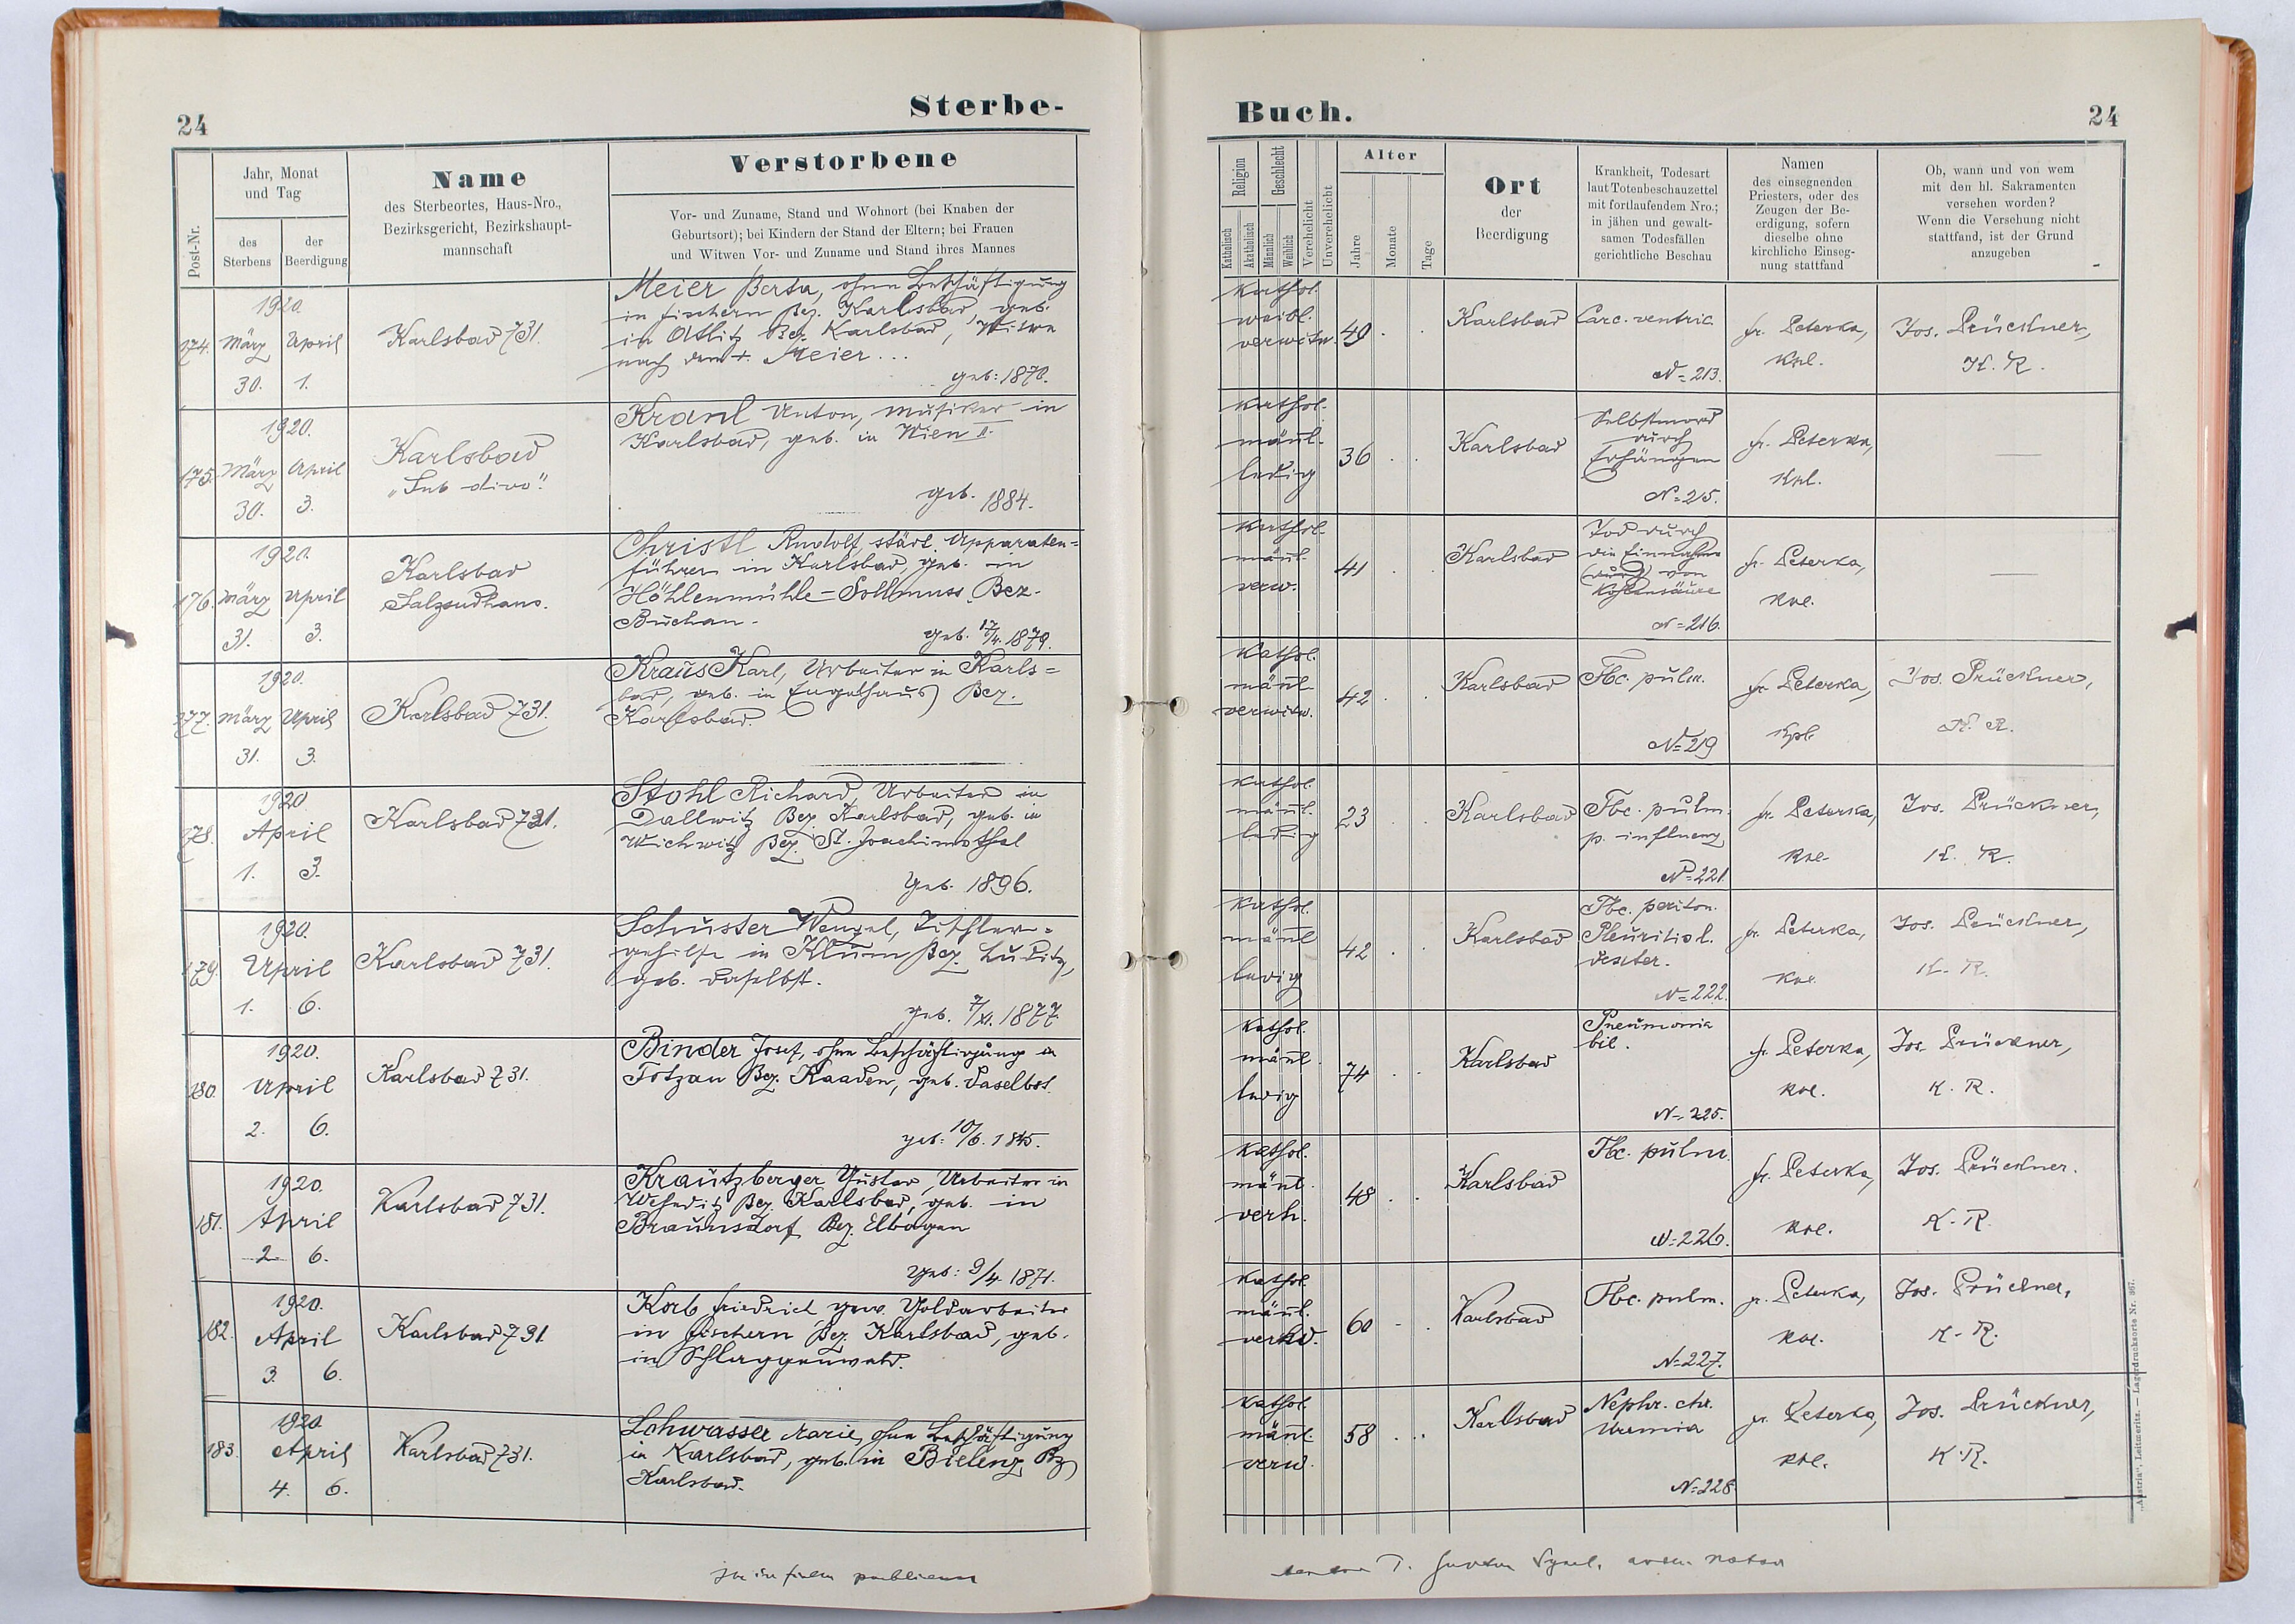 24
Sterbe-
Post-Nr.
Jahr, Monat
und Tag
des
Sterbens
der
Beerdigung
Name
des Sterbeortes, Haus-Nro.,
Bezirksgericht, Bezirkshaupt-
mannschaft
Verstorbene
Vor- und Zuname, Stand und Wohnort (bei Knaben der
Geburtsort); bei Kindern der Stand der Eltern; bei Frauen
und Witwen Vor- und Zuname und Stand ihres Mannes
174.
1920.
März
30.
April
1.
Karlsbad 731.
Meier Berta, ohne Beschäftigung
in Fischern Bez. Karlsbad, geb.
in Bez. Karlsbad, Witwe
nach dem +. Meier...
geb: 1870.
175.
1920.
März
30.
April
3.
Karlsbad
"Sub divo".
Kranl Anton, Musiker in
Karlsbad, geb. in Wien II.
geb. 1884.
176.
1920.
März
31.
April
3.
Karlsbad
Salzsudhaus.
Christl Rudolf, städt. Apparaten=
führer in Karlsbad, geb. in
Höhlenmühle - Sollmuss Bez.
Buchau.
geb. 17/4. 1879.
177.
1920.
März
31.
April
3.
Karlsbad 731.
Kraus Karl, Arbeiter in Karls=
bad, geb. in Engelhaus Bez.
Karlsbad.
178.
1920
April
1.
3.
Karlsbad 731.
Stohl Richard, Arbeiter in
Dallwitz Bez. Karlsbad, geb. in
Wichwitz Bez. St. Joachimsthal
Geb. 1896.
179.
1920.
April
1.
6.
Karlsbad 731.
Schuster Wenzel, Tischler=
gehilfe in Klum Bez. Luditz,
geb. daselbst.
geb. 7/XI. 1877
180.
1920.
April
2.
6.
Karlsbad 731.
Binder Josef, ohne Beschäftigung in
Totzau Bez. Kaaden, geb. daselbst.
geb: 10/6. 1845.
181.
1920.
April
2
6.
Karlsbad 731.
Krautzberger Gustav, Arbeiter in
Weheditz Bez. Karlsbad, geb. in
Braunsdorf Bez. Elbogen
Geb: 9/4. 1871.
182.
1920.
April
3.
6.
Karlsbad 731
Korb Friedrich gew. Goldarbeiter
in Fischern Bez. Karlsbad, geb.
in Schlaggenwald.
183.
1920
April
4.
6.
Karlsbad 731.
Lohwasser Marie, ohne Beschäftigung
in Karlsbad, geb. in Bielenz Bez
Karlsbad.
Buch.
24
Religion
Katholisch
Akatholisch
Geschlecht
Männlich
Weiblich
Verehelicht
Unverehelicht
Alter
Jahre
Monate
Tage
Ort
der
Beerdigung
Krankheit, Todesart
laut Totenbeschauzettel
mit fortlaufendem Nro.;
in jähen und gewalt-
samen Todesfällen
gerichtliche Beschau
Namen
des einsegnenden
Priesters, oder des
Zeugen der Be-
erdigung, sofern
dieselbe ohne
kirchliche Einseg-
nung stattfand
Ob, wann und von wem
mit den hl. Sakramenten
versehen worden?
Wenn die Versehung nicht
stattfand, ist der Grund
anzugeben
kathol.
weibl.
verwitw.
49
Karlsbad
Carc. ventric.
N= 213.
fr. Peterka,
Kpl.
Jos. Prückner,
K. R.
kathol.
männl.
ledig
36
Karlsbad
Selbstmord
durch
Erhängen
N= 215.
fr. Peterka,
Kpl.
kathol.
männl.
verw.
41
Karlsbad
Tod durch
die Einnahme
(durch) von
Kohlensäure
N= 216.
fr. Peterka,
Kpl.
kathol.
männl.
verwitw.
42
Karlsbad
Tbc. pulm.
N= 219
fr. Peterka,
Kpl.
Jos. Prückner,
K. R.
kathol.
männl.
ledig
23
Karlsbad
Tbc. pulm.
p. influenz
N= 221.
fr. Peterka,
Kpl.
Jos. Prückner,
K. R.
kathol.
männl.
ledig
42
Karlsbad
Tbc. periton.
Pleuritis l.
dexter.
N= 222.
fr. Peterka,
Kpl.
Jos. Prückner,
K. R.
kathol.
männl.
ledig
74
Karlsbad
Pneumonia
bil.
N= 225.
fr. Peterka,
Kpl.
Jos. Prückner,
K. R.
kathol.
männl.
verh.
48
Karlsbad
Tbc. pulm.
N= 226.
fr. Peterka,
Kpl.
Jos. Prückner.
K. R.
kathol.
männl.
60
Karlsbad
Tbc. pulm.
N= 227.
fr. Peterka,
Kpl.
Jos. Prückner,
K. R.
kathol.
männl.
verw.
58
Karlsbad
Nephr. chr.
Uremia
N= 228
fr. Peterka,
Kpl.
Jos. Prückner,
K. R.
"Austria", Leitmeritz. — Lagerdrucksorte Nr. 367.